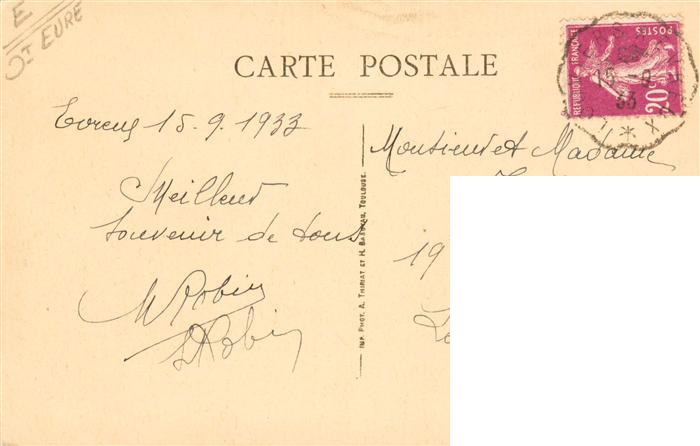 E
Dt EURE
CARTE POSTALE
REPUBLIQUE FRANÇAISE
POSTES
20c
15-9
33
Evreux 15.9.1933
Meilleur
souvenir de tous
M Robin
Robin
IMP. PHOT. A. THIRIAT ET H. BASUYAU, TOULOUSE
Monsieur et Madame
19